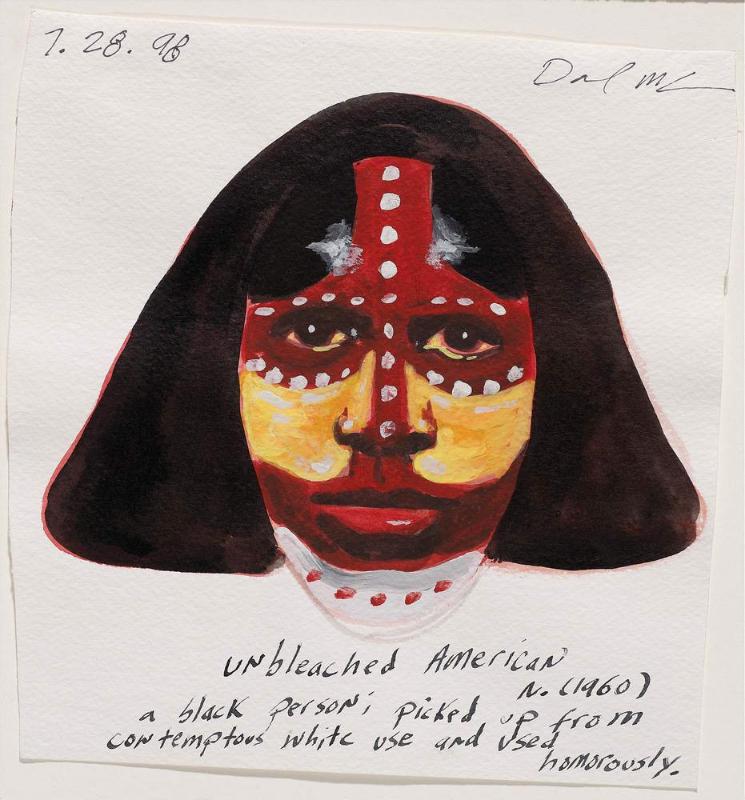 7.28.98
unbleached American
N. (1960)
a black person; picked up from
contemptous white use and used
homorously.